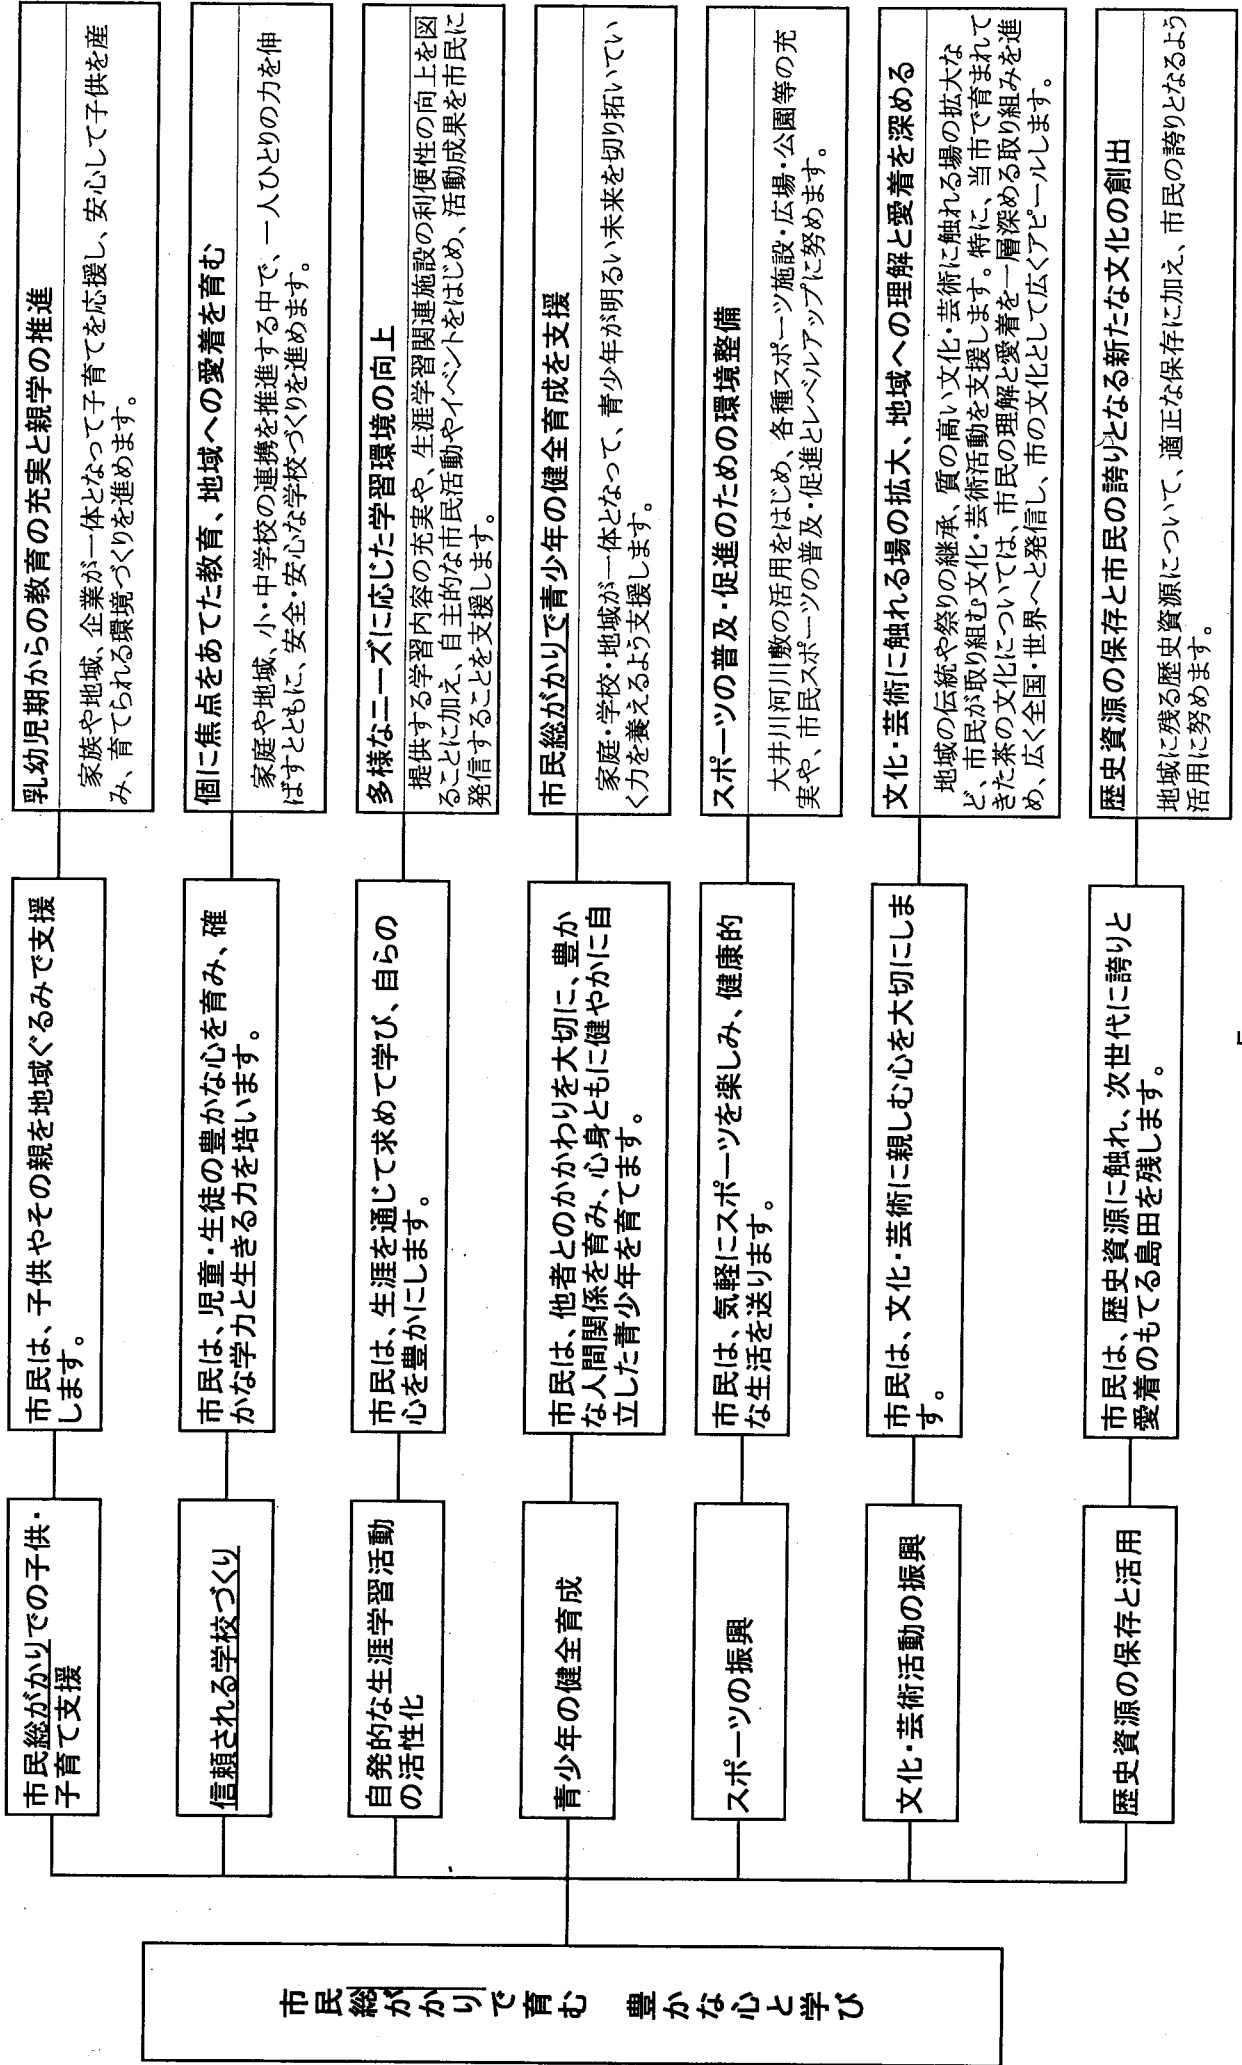 市民総がかりで育む　豊かな心と学び
市民総がかりでの子供・
子育て支援
市民は、子供やその親を地域ぐるみで支援
します。
乳幼児期からの教育の充実と親学の推進
家族や地域、企業が一体となって子育てを応援し、安心して子供を産
み、育てられる環境づくりを進めます。
信頼される学校づくり
市民は、児童・生徒の豊かな心を育み、確
かな学力と生きる力を培います。
個に焦点をあてた教育、地域への愛着を育む
家庭や地域、小・中学校の連携を推進する中で、一人ひとりの力を伸
ばすとともに、安全・安心な学校づくりを進めます。
自発的な生涯学習活動
の活性化
市民は、生涯を通じて求めて学び、自らの
心を豊かにします。
多様なニーズに応じた学習環境の向上
提供する学習内容の充実や、生涯学習関連施設の利便性の向上を図
ることに加え、自主的な市民活動やイベントをはじめ、活動成果を市民に
発信することを支援します。
青少年の健全育成
市民は、他者とのかかわりを大切に、豊か
な人間関係を育み、心身ともに健やかに自
立した青少年を育てます。
市民総がかりで青少年の健全育成を支援
家庭・学校・地域が一体となって、青少年が明るい未来を切り拓いてい
く力を養えるよう支援します。
スポーツの振興
市民は、気軽にスポーツを楽しみ、健康的
な生活を送ります。
スポーツの普及・促進のための環境整備
大井川河川敷の活用をはじめ、各種スポーツ施設・広場・公園等の充
実や、市民スポーツの普及・促進とレベルアップに努めます。
文化・芸術活動の振興
市民は、文化・芸術に親しむ心を大切にしま
す。
文化・芸術に触れる場の拡大、地域への理解と愛着を深める
地域の伝統や祭りの継承、質の高い文化・芸術に触れる場の拡大な
ど、市民が取り組む文化・芸術活動を支援します。特に、当市で育まれて
きた茶の文化については、市民の理解と愛着を一層深める取り組みを進
め、広く全国・世界へと発信し、市の文化として広くアピールします。
歴史資源の保存と活用
市民は、歴史資源に触れ、次世代に誇りと
愛着のもてる島田を残します。
歴史資源の保存と市民の誇りとなる新たな文化の創出
地域に残る歴史資源について、適正な保存に加え、市民の誇りとなるよう
活用に努めます。